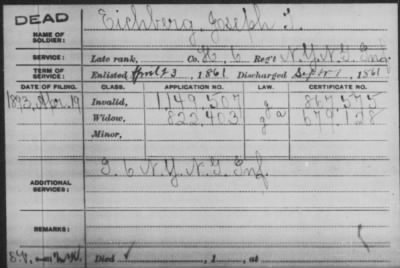 DEAD
NAME OF SOLDIER: Eichberg, Joseph
SERVICE: Late rank, Co. H. 6 Reg't N.Y.N.G. Inf.
TERM OF SERVICE: Enlisted April 23, 1861 Discharged Sept 1, 1861
DATE OF FILING. CLASS. APPLICATION NO. LAW. CERTIFICATE NO.
1893, Apr. 19 Invalid, 1,149,507 g 867,575
Widow, 822,403 g a 679,128
Minor,
ADDITIONAL SERVICES: 6 N.Y.N.G. Inf.
REMARKS:
Died , 1 , at